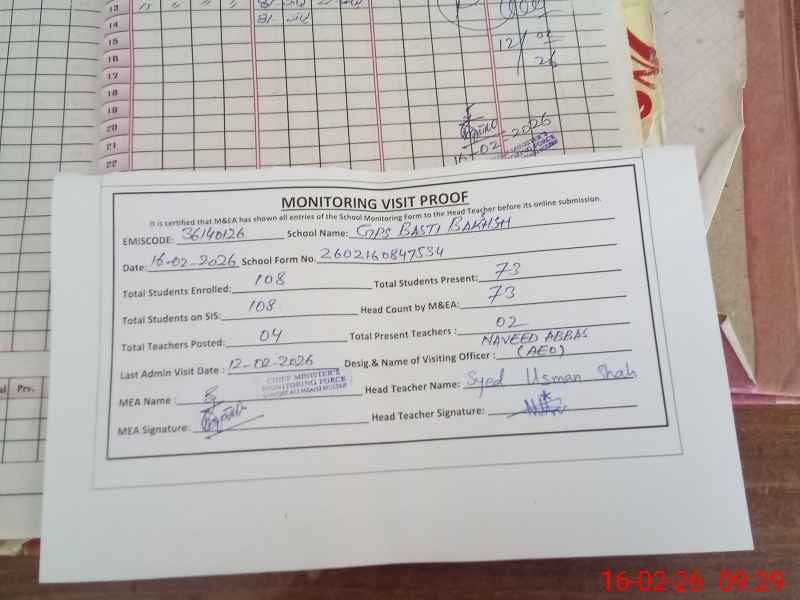 13
14
15
12/02
16
26
17
18
19
20
21
16-02-2026
22
MONITORING VISIT PROOF
It is certified that M&EA has shown all entries of the School Monitoring Form to the Head Teacher before its online submission.
EMISCODE: 36140126 School Name: GPS BASTI BAKHSH
Date: 16-02-2026 School Form No. 2602160847534
Total Students Enrolled: 108 Total Students Present: 73
Total Students on SIS: 108 Head Count by M&EA: 73
Total Teachers Posted: 04 Total Present Teachers : 02
Last Admin Visit Date : 12-02-2026 Desig.& Name of Visiting Officer : NAVEED ABBAS (AEO)
CHIEF MINISTER'S
MONITORING FORCE
MEA Name : Head Teacher Name: Syed Usman Shah
MEA Signature: Head Teacher Signature:
Prv.
16-02-26 09:29